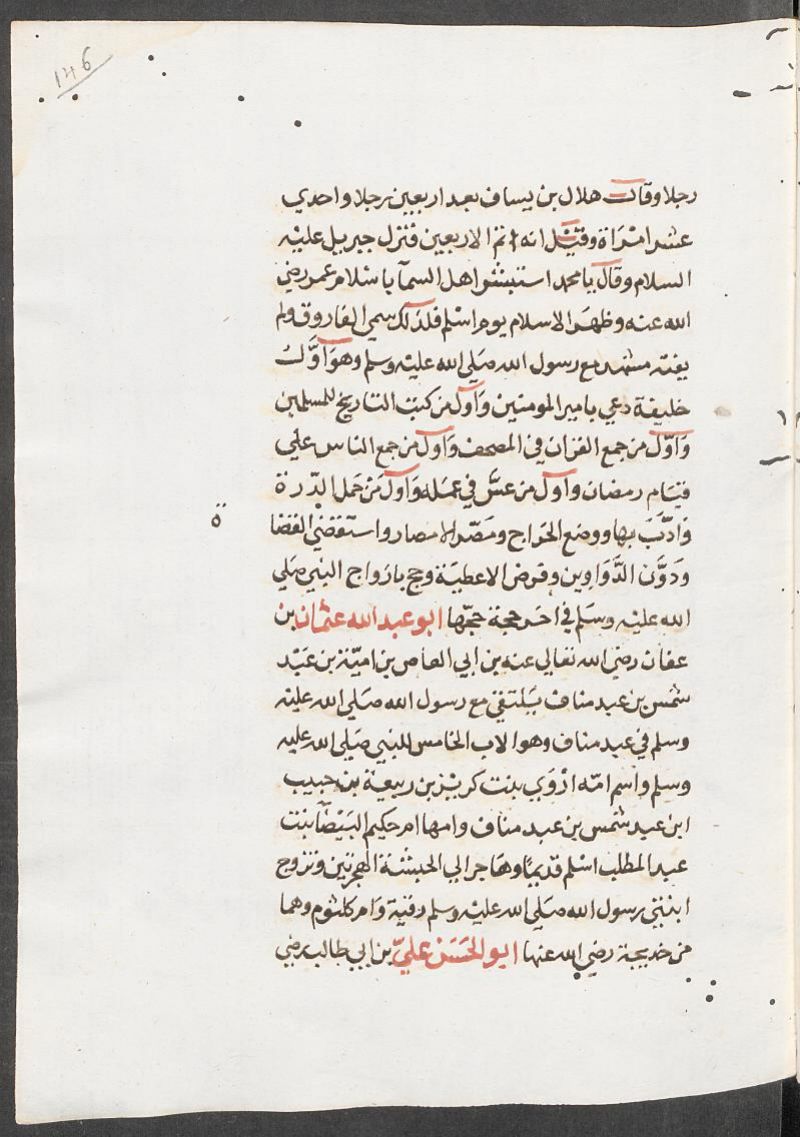 146
رجلا وقال هلال بن يساف بعد اربعين رجلا واحدي
عشر امْرَاة وقيْل انه اتم الاربعين فنزل جبريل عليْه
السلام وقال يا محمد استبشر اهل السمآ باسْلام عمر رضي
الله عنه وظهَر الاسلام يوم اسْلم فلذلك سمي الفاروق ولم
يفته مشهد مع رسول الله صَلي الله عليْه وسلم وهوَ اوَّل
خليفة دعي بامير المومنين وَاول من كتب التاريخ للمسلمين
وَاوّل من جمع القرْان في المصحف وَاول من جمع الناس علي
قيَام رمضان وَاول من عسَّ في عمَله وَاول مَنْ حَمل الدّرة
وَادَّبَ بها ووضع الخرَاج ومَصّر الامصار واستقضي القضا
ة
ودَوَّن الدَّوَاوين وفرض الاعطيَة وحج بازوَاج النبي صَلي
الله عليْه وسَلم في اخر حجة حجّها ابو عبد الله عثمان بن
عفان رضي الله تعالي عنه بن ابي العاص بن اميّة بن عَبْد
شمْس بن عبد مناف يَلتقي مع رسول الله صَلي الله عليْه
وسلم في عبد مناف وهو الاب الخامس للنبي صَلي الله عليه
وسلم واسم امّه ارْوَي بنت كريْز بن ربيعة بن حبيب
ابن عبد شمس بن عبد مناف وامها ام حكيم البَيْضَا بنت
عبد المطلب اسْلم قديمًا وهَاجر الي الحبشة الهجرتين وتزوج
ابنتي رسول الله صَلي الله عليْه وسلم رقية وَام كلثوم وهما
من خديجة رضي الله عنها ابو الحَسَن عليّ بن ابي طالب رضي